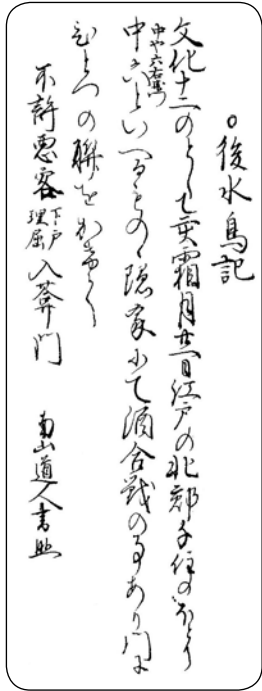 ○後水鳥記
文化十二のとし乙亥霜月廿一日江戸の北郊千住のほとり
中や六右衛門
中六といへるものゝ隠家にて酒合戦の事あり門に
ひとつの聯をかけて
不許悪客下戸理屈入菴門
南山道人書